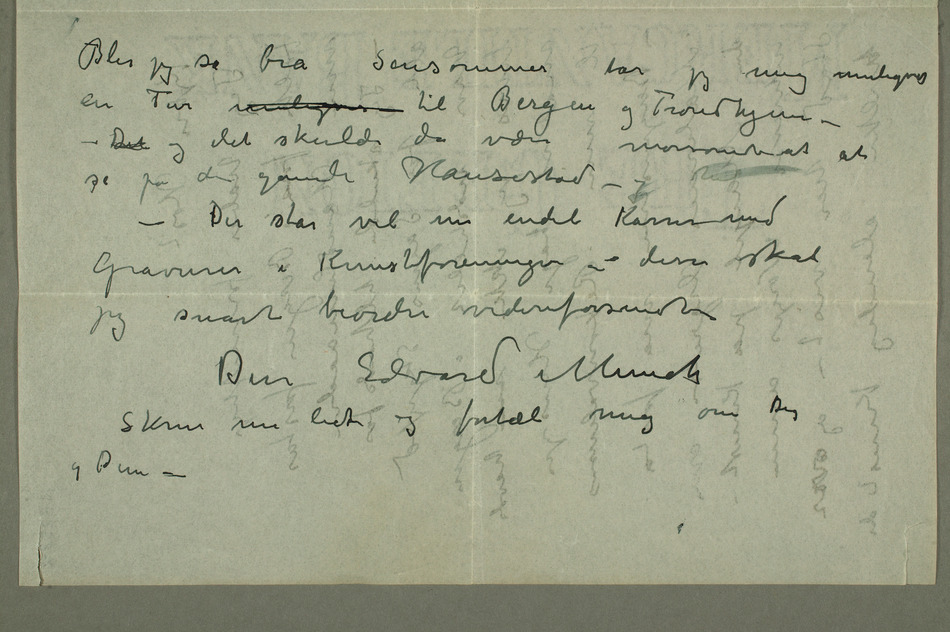 Blir jeg så bra Sensommer tar jeg mig muligens
en Tur muligens til Bergen og Trondhjem –
– Det og det skulde da være morsomt at at
se på den gamle Hansestad –
– Der står vel nu endel Karrer med
Gravurer i Kunstforeningen – disse skal
jeg snart beordre videreforsendt –
Din Edvard Munch
Skriv nu lidt og fortæl mig om Dig
og Dine –